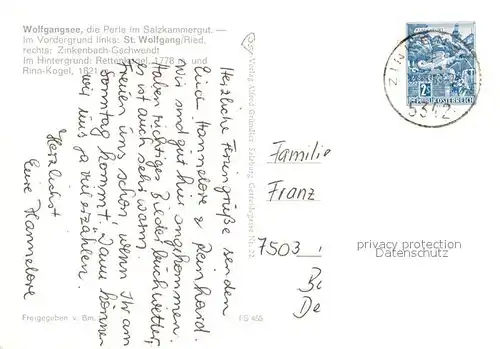 Wolfgangsee, die Perle im Salzkammergut. —
Im Vordergrund links: St. Wolfgang/Ried,
rechts: Zinkenbach-Gschwendt
Im Hintergrund: Rettenkogel, 1778 m und
Rinn-Kogel, 1821
Herzliche Feriengrüße senden
Euch Hannelore & Reinhard.
Wir sind gut hier angekommen.
Haben richtiges Bilderbuchwetter,
es ist auch sehr warm.
Freuen uns schon, wenn Ihr am
Sonntag kommt. Dann können
wir uns ja viel erzählen.
Herzlichst
Eure Hannelore
Freigegeben v. Bm.
FS 455
2S
REPUBLIK ÖSTERREICH
5342
Familie
Franz
7503
privacy protection
Datenschutz
De